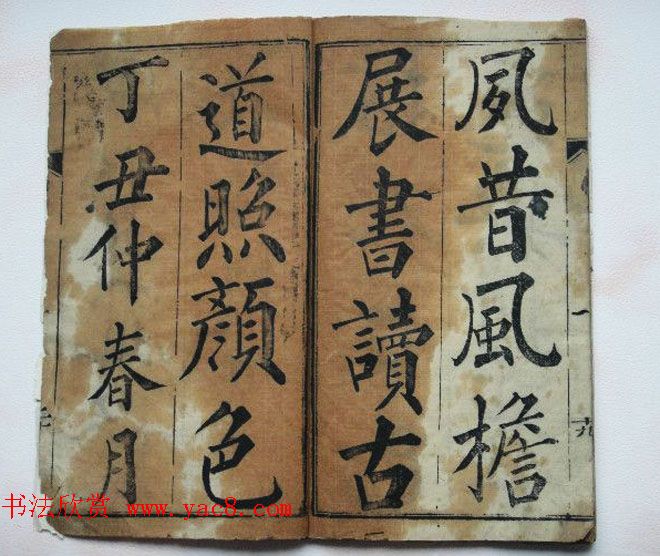 夙昔風檐
展書讀古
道照顏色
丁丑仲春月
书法欣赏 www.yac8.com